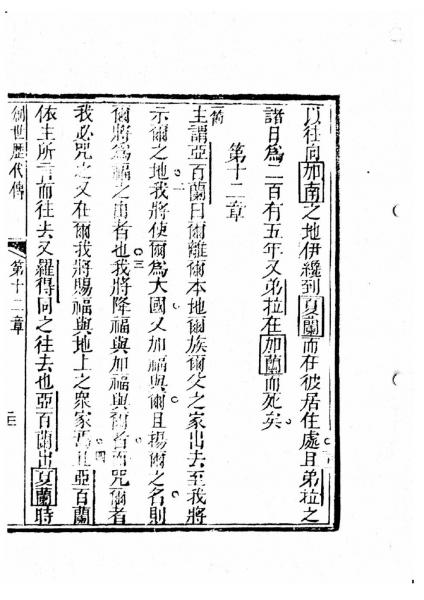 以往向加南之地伊纔到夏蘭而在彼居住處且弟拉之
諸日為二百有五年又弟拉在加蘭而死矣
第十二章
節
主謂亞百蘭曰爾離爾本地爾族爾父之家出去至我將
一
示爾之地我將使爾為大國又加福與爾且揚爾之名則
二
爾將為福之甫者也我將降福與加福與爾者而咒爾者
三
我必咒之又在爾我將賜福與地上之眾家焉且亞百蘭
四
依主所言而往去又羅得同之往去也亞百蘭出夏蘭時
創世歷代傳
第十二章